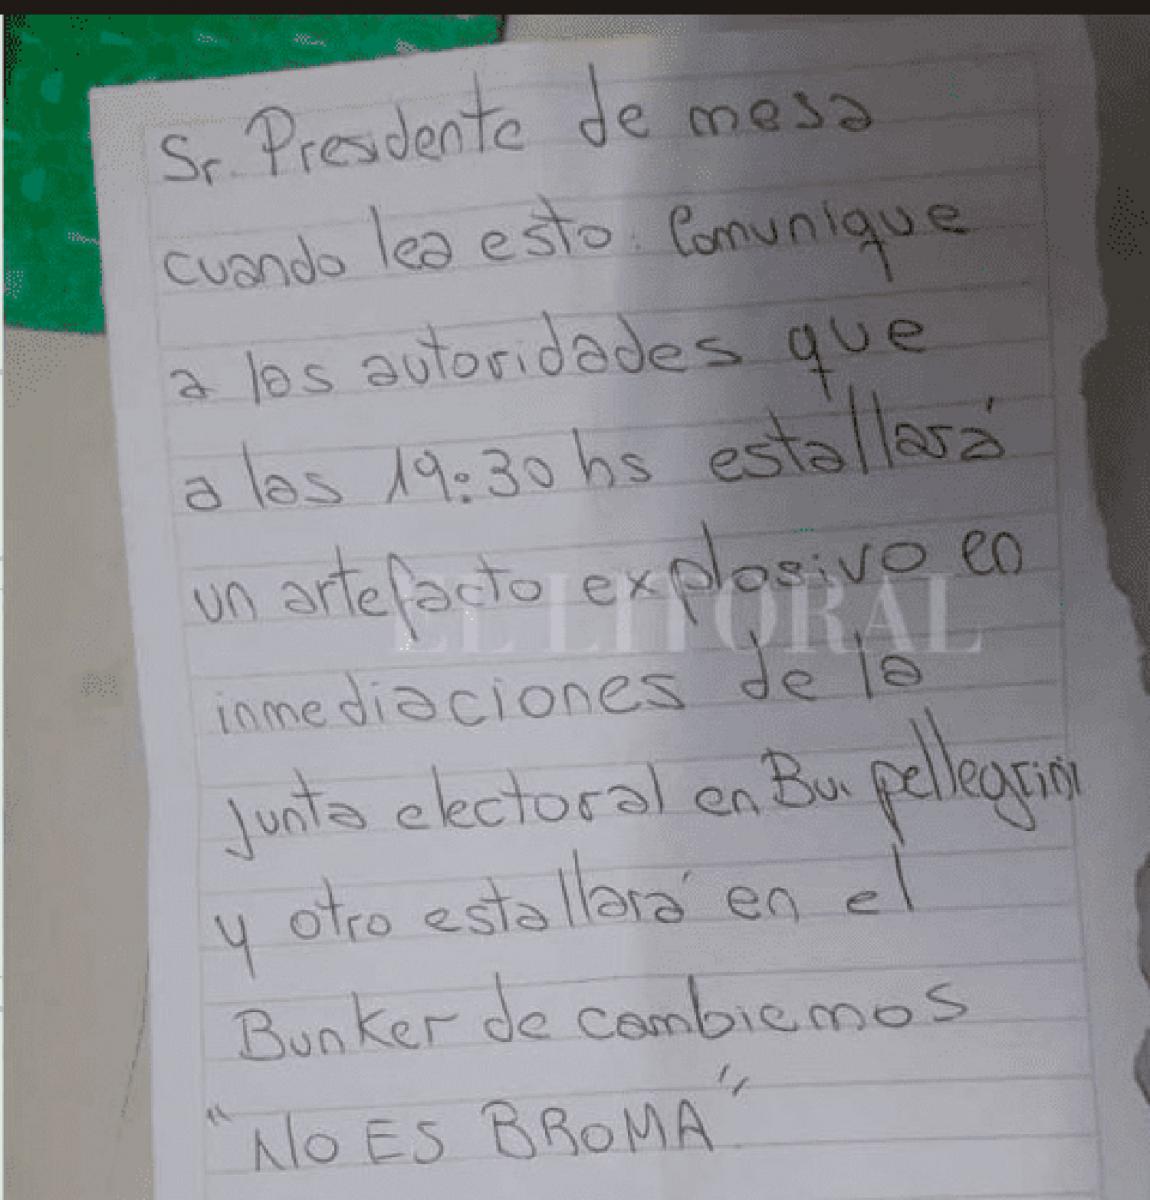 Sr. Presidente de mesa
cuando lea esto. Comunique
a las autoridades que
a las 19:30 hs estallará
un artefacto explosivo en
EL LITORAL
inmediaciones de la
Junta electoral en Bv. pellegrini
y otro estallará en el
Bunker de cambiemos
"NO ES BROMA"